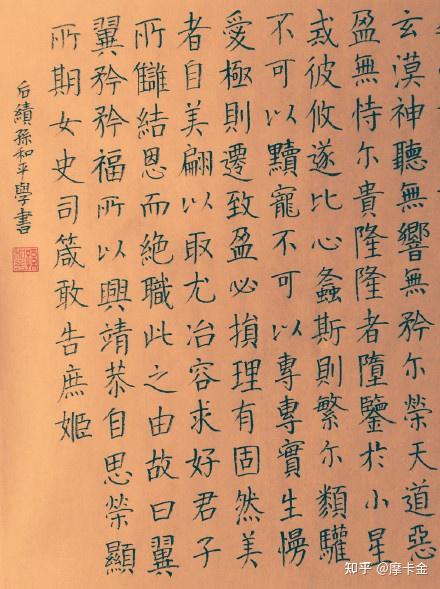 玄漠神聽無響無矜尔榮天道惡
盈無恃尔貴隆隆者墮鑒於小星
戒彼攸遂比心螽斯則繁尔類驩
不可以黷寵不可以專專實生慢
愛極則遷致盈必損理有固然美
者自美翩以取尤冶容求好君子
所讎結恩而絕職此之由故曰翼
翼矜矜福所以興靖恭自思榮顯
所期女史司箴敢告庶姬
后績孫和平學書
知乎 @摩卡金